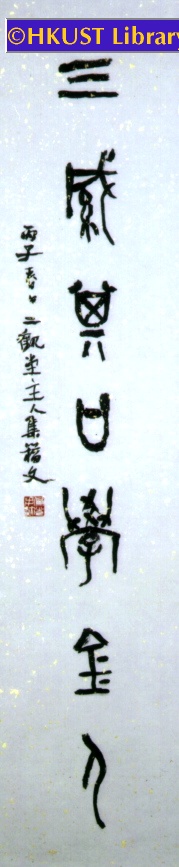 ©HKUST Library
三緘其口學金人
丙子春日二觀堂主人集籀文